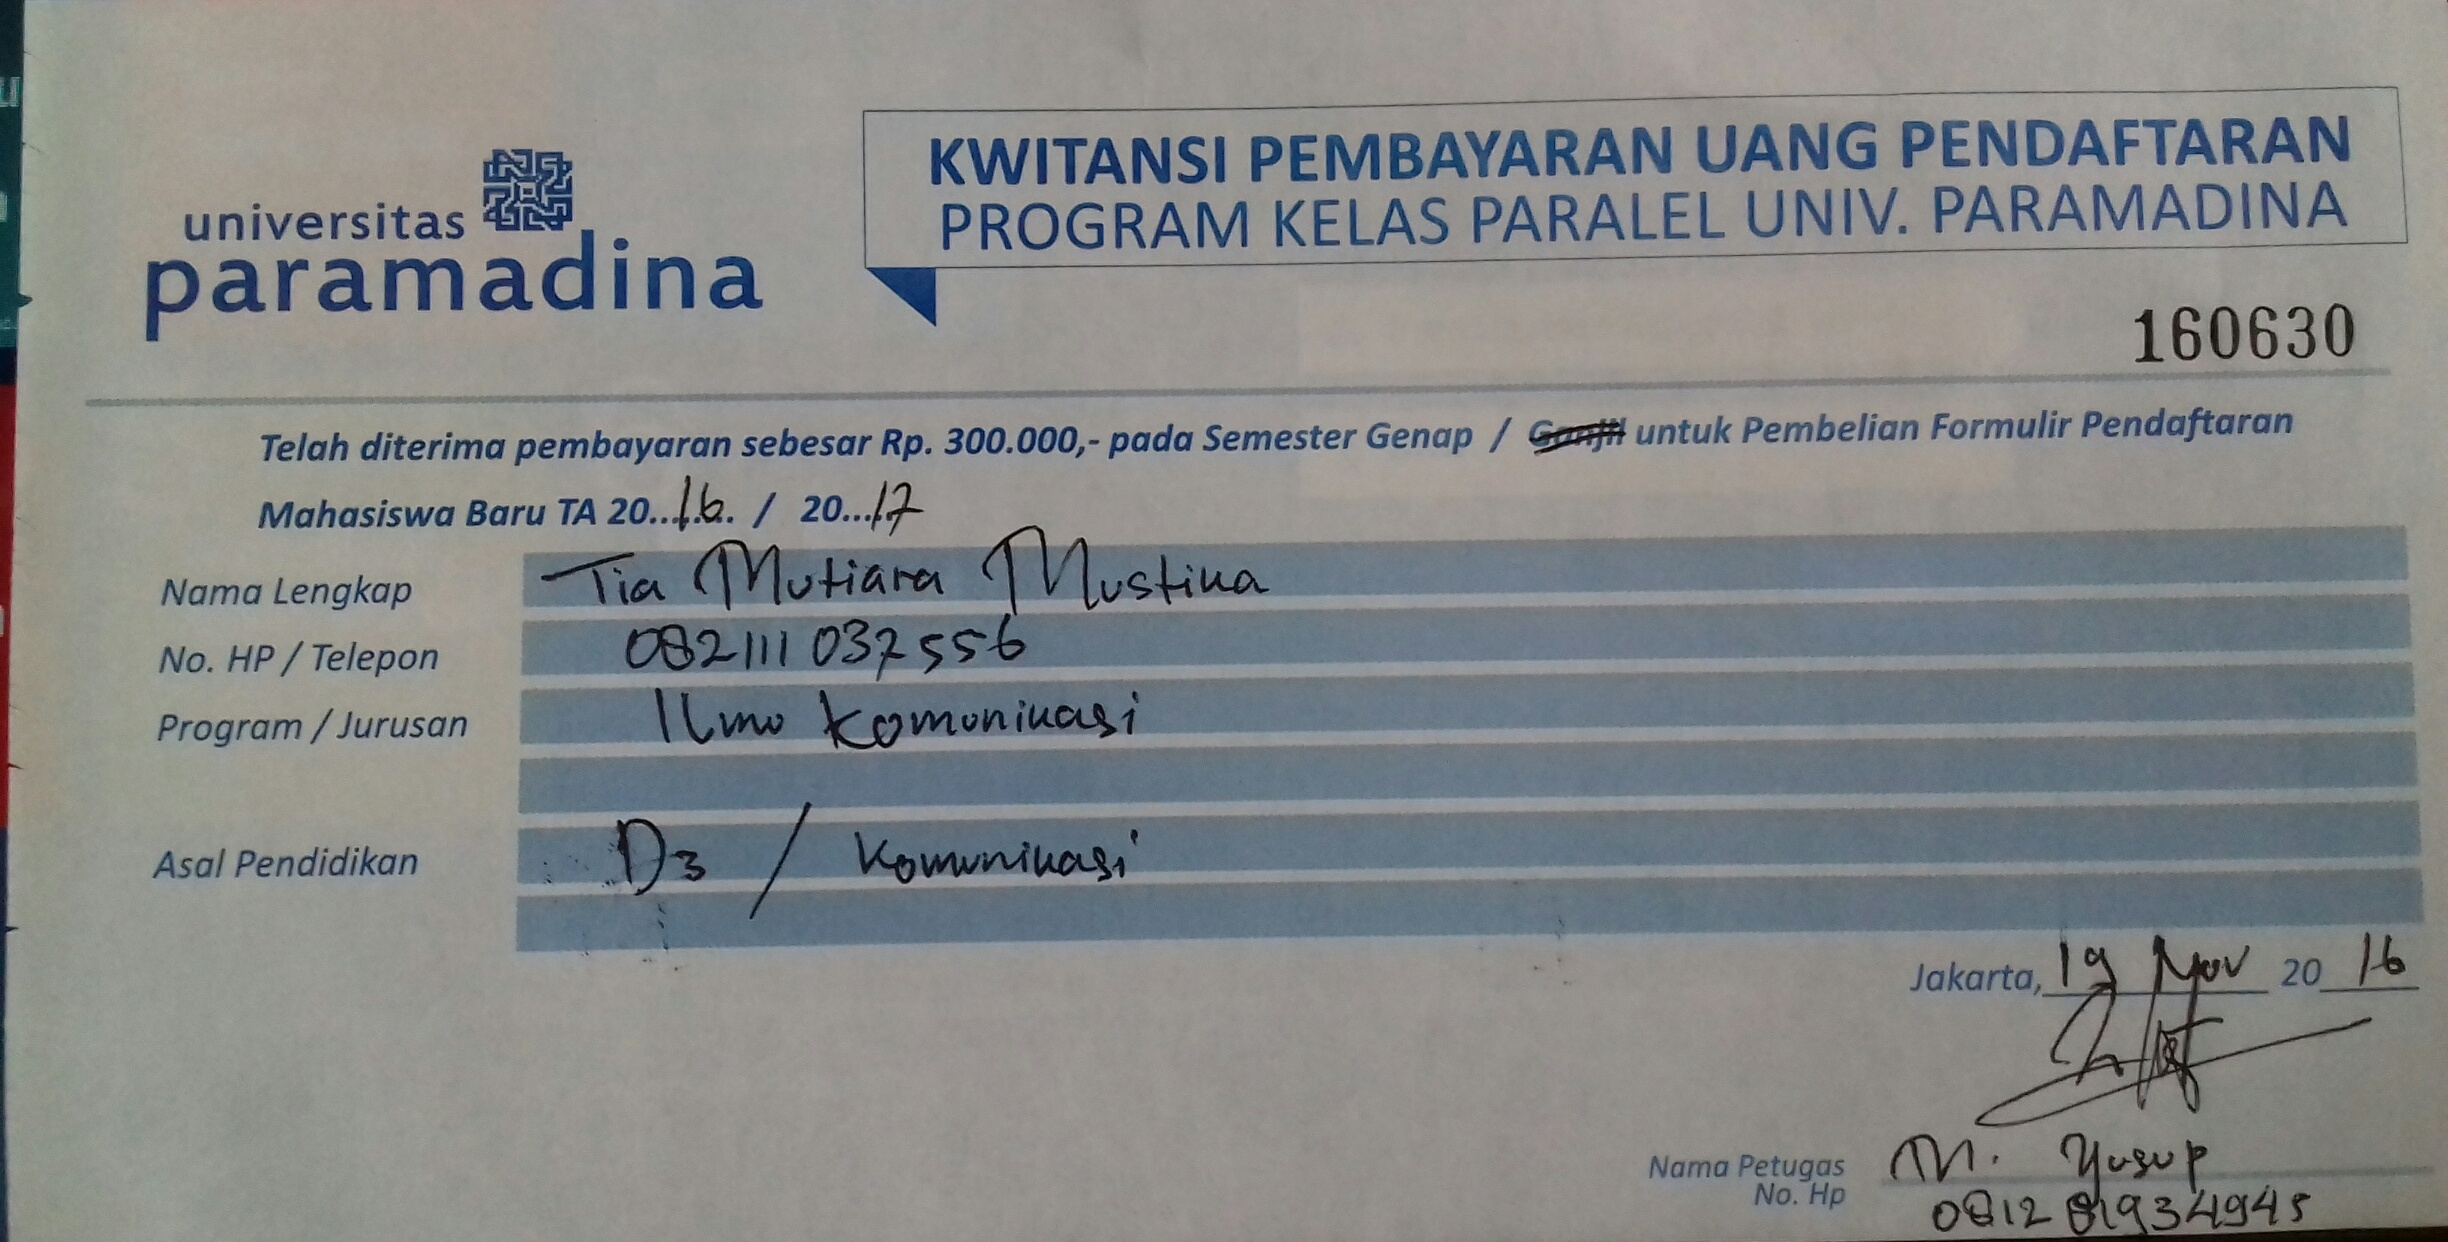 universitas
paramadina
KWITANSI PEMBAYARAN UANG PENDAFTARAN
PROGRAM KELAS PARALEL UNIV. PARAMADINA
160630
Telah diterima pembayaran sebesar Rp. 300.000,- pada Semester Genap / Ganjil untuk Pembelian Formulir Pendaftaran
Mahasiswa Baru TA 20...16.. / 20...17
Nama Lengkap Tia Mutiara Mustika
No. HP / Telepon 082111037556
Program / Jurusan Ilmu Komunikasi
Asal Pendidikan D3 / Komunikasi
Jakarta, 19 Nov 20 16
Nama Petugas M. Yusup
No. Hp 081281934945